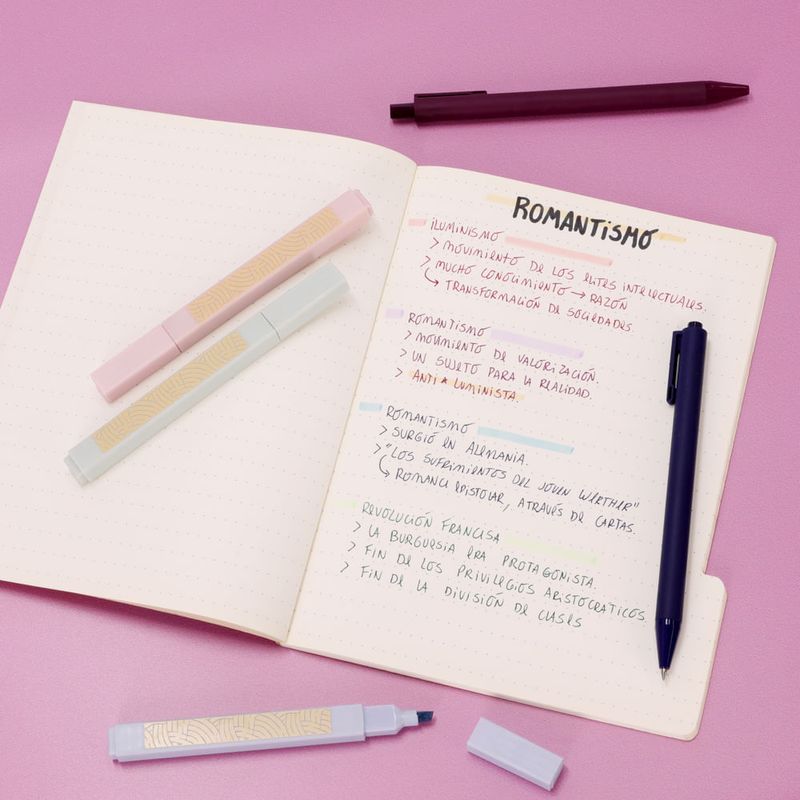 ROMANTISMO
ILUMINISMO
> MOVIMIENTO DE LOS ELITES INTELECTUALES.
> MUCHO CONOCIMIENTO → RAZÓN
↳ TRANSFORMACIÓN DE SOCIEDADES.
ROMANTISMO
> MOVIMIENTO DE VALORIZACIÓN.
> UN SUJETO PARA LA REALIDAD.
> ANTI * LUMINISTA.
ROMANTISMO
> SURGIÓ EN ALEMANIA.
> "LOS SUFRIMIENTOS DEL JOVEN WERTHER"
↳ ROMANCE EPISTOLAR, ATRAVÉS DE CARTAS.
REVOLUCIÓN FRANCESA
> LA BURGUESIA ERA PROTAGONISTA.
> FIN DE LOS PRIVILEGIOS ARISTOCRATICOS
> FIN DE LA DIVISIÓN DE CLASES